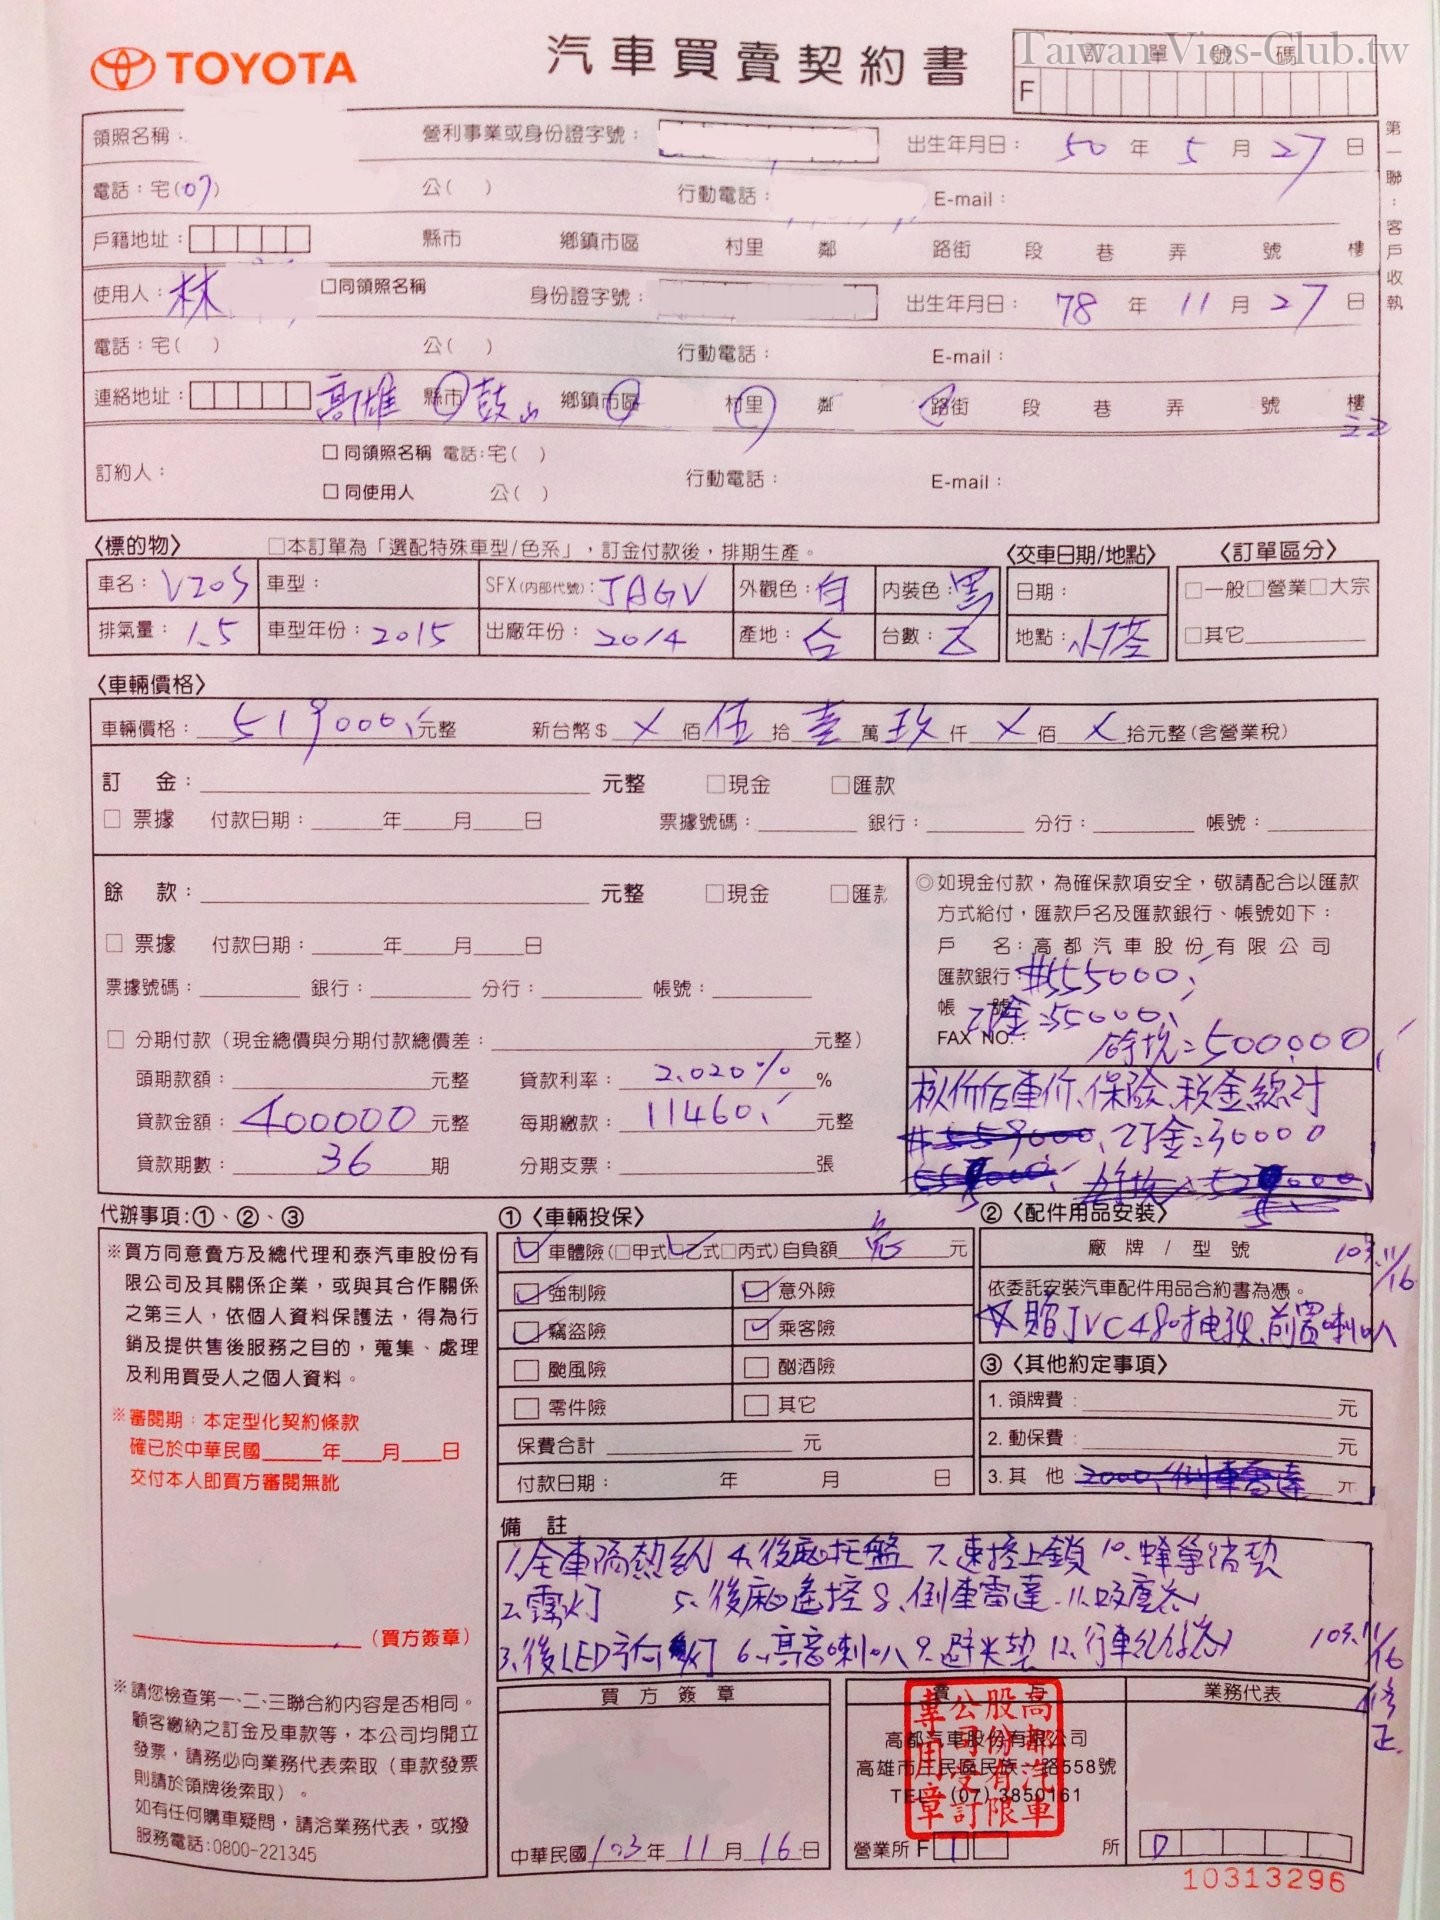 Taiwan Vios-Club.tw
TOYOTA
汽車買賣契約書
訂單號碼
F
第一聯：客戶收執
領照名稱： 營利事業或身份證字號： 出生年月日： 50 年 5 月 27 日
電話：宅(07) 公( ) 行動電話： E-mail：
戶籍地址： 縣市 鄉鎮市區 村里 鄰 路街 段 巷 弄 號 樓
使用人：林 □同領照名稱 身份證字號： 出生年月日： 78 年 11 月 27 日
電話：宅( ) 公( ) 行動電話： E-mail：
連絡地址： 高雄 縣市 鼓山 鄉鎮市區 村里 鄰 路街 段 巷 弄 號 樓
訂約人： □同領照名稱 電話:宅( ) 行動電話： E-mail：
□同使用人 公( )
〈標的物〉 □本訂單為「選配特殊車型/色系」，訂金付款後，排期生產。 〈交車日期/地點〉 〈訂單區分〉
車名： VIOS 車型： SFX(內部代號)： JAGV 外觀色：白 內裝色：黑 日期： □一般□營業□大宗
排氣量： 1.5 車型年份： 2015 出廠年份： 2014 產地：台 台數： 地點：小港 □其它
〈車輛價格〉
車輛價格： 519000 元整 新台幣$ X 佰 伍 拾 壹 萬 玖 仟 X 佰 X 拾元整(含營業稅)
訂 金： 元整 □現金 □匯款
□ 票據 付款日期： 年 月 日 票據號碼： 銀行： 分行： 帳號：
餘 款： 元整 □現金 □匯款
□ 票據 付款日期： 年 月 日
票據號碼： 銀行： 分行： 帳號：
□ 分期付款（現金總價與分期付款總價差： 元整）
頭期款額： 元整 貸款利率： 2.020% %
貸款金額： 400000 元整 每期繳款： 11460 元整
貸款期數： 36 期 分期支票： 張
◎如現金付款，為確保款項安全，敬請配合以匯款
方式給付，匯款戶名及匯款銀行、帳號如下：
戶 名：高都汽車股份有限公司
匯款銀行 #555000
帳 號 訂金=55000
FAX NO.: 餘款=500000
核價后車價、保險、稅金總計
#559000、訂金=30000
代辦事項:①、②、③
※買方同意賣方及總代理和泰汽車股份有
限公司及其關係企業，或與其合作關係
之第三人，依個人資料保護法，得為行
銷及提供售後服務之目的，蒐集、處理
及利用買受人之個人資料。
※審閱期：本定型化契約條款
確已於中華民國 年 月 日
交付本人即買方審閱無訛
（買方簽章）
※請您檢查第一、二、三聯合約內容是否相同。
顧客繳納之訂金及車款等，本公司均開立
發票，請務必向業務代表索取（車款發票
則請於領牌後索取）。
如有任何購車疑問，請洽業務代表，或撥
服務電話:0800-221345
①〈車輛投保〉
車體險(□甲式□乙式□丙式)自負額 免 元
強制險 意外險
竊盜險 乘客險
颱風險 酗酒險
零件險 其它
保費合計 元
付款日期： 年 月 日
②〈配件用品安裝〉
廠牌/型號 103.11/16
依委託安裝汽車配件用品合約書為憑。
贈JVC4吋 前置喇叭
③〈其他約定事項〉
1. 領牌費： 元
2. 動保費： 元
3. 其 他： 2000、倒車雷達 元
備 註
1.全車隔熱紙 4.後廂托盤 7.速控上鎖 10.蜂巢 墊
2.霧灯 5.後廂遙控 8.倒車雷達 11.吸塵器
3.後LED方向灯 6.高音喇叭 9.避光墊 12.行車紀錄器 103.11/16
修正
買方簽章
中華民國 103 年 11 月 16 日
賣方
高都汽車股份有限公司
高雄市三民區民族一路558號
TEL：(07) 3850161
高都汽車股份有限公司 訂 專用章
營業所 F 1 所
業務代表
D
10313296